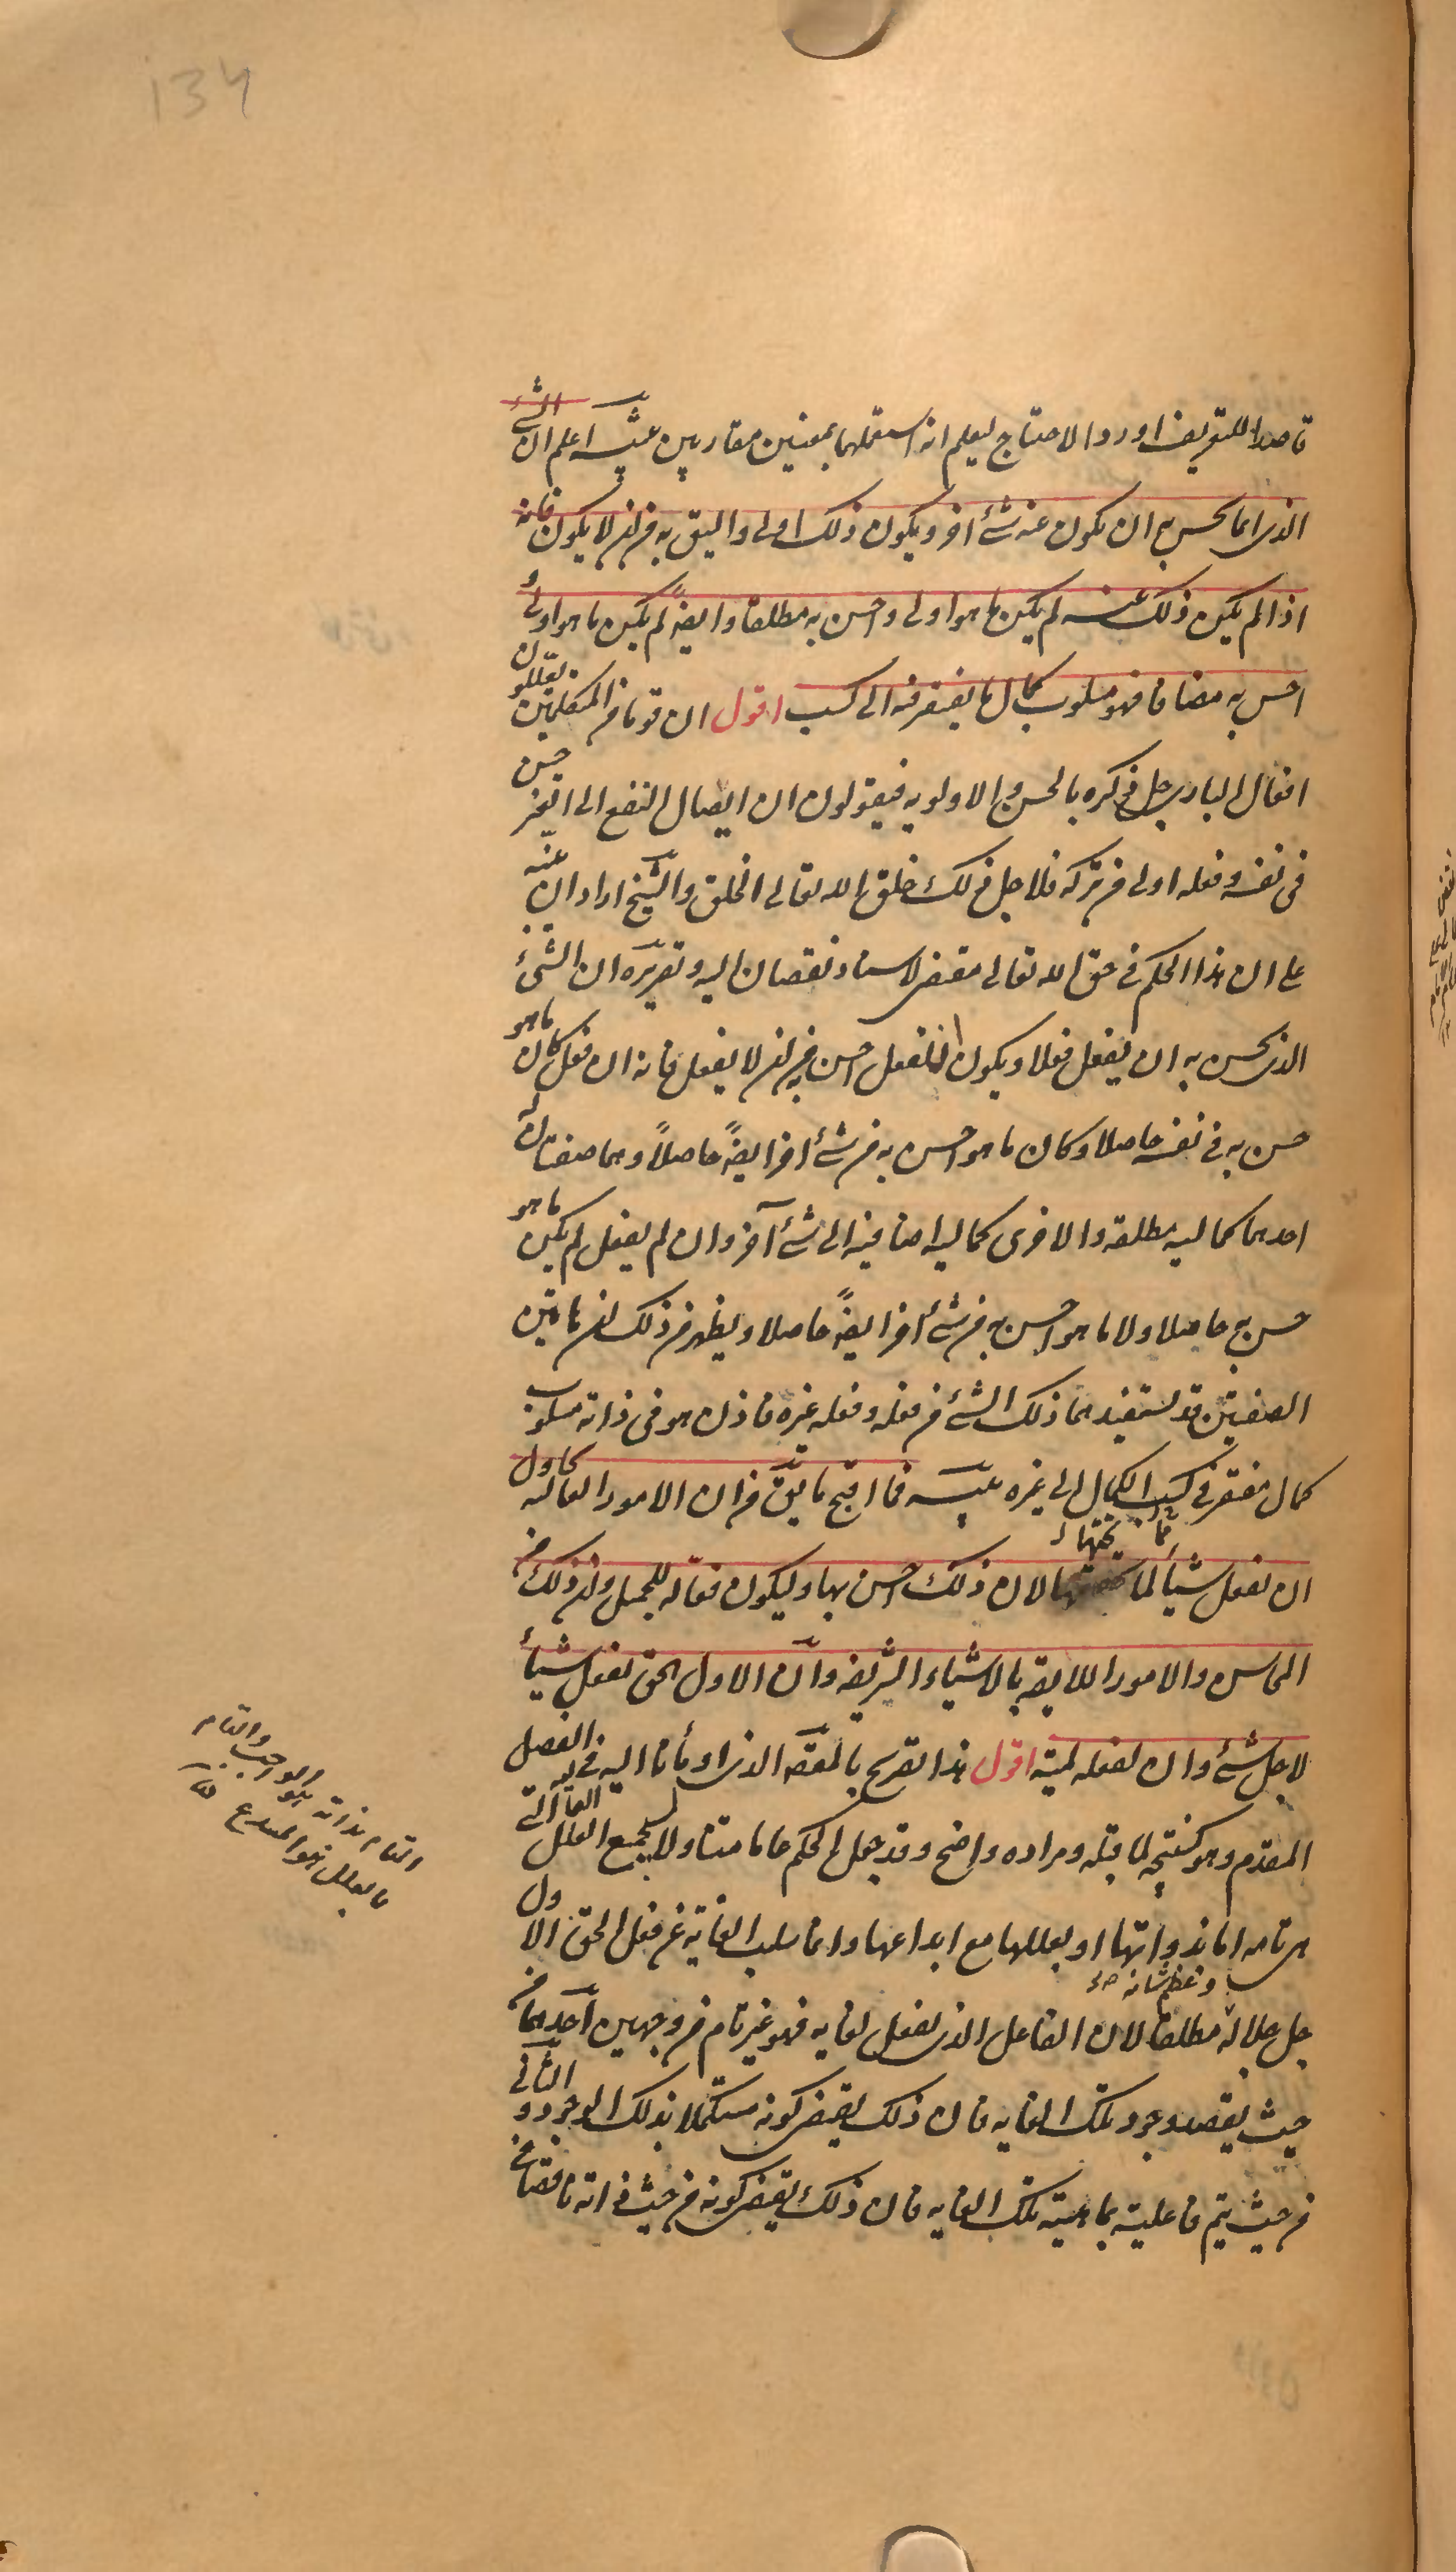 134
قاصدا للتعريف اورد الاحتاج ليعلم انه استعملهما بمعنيين متقاربين تنبيه اعلم ان الشئ
الذى انما يحسن به ان يكون عنه شئ اخر ويكون ذلك اولى واليق به من ان لا يكون فانه
اذا لم يكن ذلك عنه لم يكن ما هو اولى واحسن به مطلقا وايضاً لم يكن ما هو اولى و
احسن به مضافا فهو مسلوب كمال ما يفتقر فيه الى كسب اقول ان قوما من المتكلمين يعللون
افعال البارى جل ذكره بالحسن والاولويه فيقولون ان ايصال النفع الى الغير حسن
فى نفسه وفعله اولى من تركه فلاجل ذلك خلق الله تعالى الخلق والشيخ اراد ان ينبه
على ان هذا الحكم فى حق الله تعالى مقتض لاسناد نقصان اليه وتقريره ان الشئ
الذى يحسن به ان يفعل فعلا ويكون ان يفعل احسن من ان لا يفعل فانه ان فعل كان ما هو
حسن به فى نفسه حاصلا وكان ما هو احسن به من شئ اخر ايضاً حاصلاً وهما صفتان له
احدهما كماليه مطلقه والاخرى كماليه اضافيه الى شئ آخر وان لم يفعل لم يكن ما هو
حسن به حاصلا ولا ما هو احسن به من شئ اخر ايضاً حاصلا ويظهر من ذلك ان هاتين
الصفتين قد يستفيدهما ذلك الشئ من فعله وفعله غيره فاذن هو فى ذاته مسلوب
كمال مفتقر فى كسب الكمال الى غيره تنبيه فما اقبح ما يقال من ان الامور العاليه تحاول
ان تفعل شيأ لما تحتها لان ذلك احسن بها وليكون فعاله للجميل وان ذلك من
المحاسن والامور اللايقه بالاشياء الشريفه وان الاول الحق يفعل شيأ
لاجل شئ وان لفعله لميّة اقول هذا تصريح بالمقصد الذى اومأنا اليه فى الفصل
المقدم وهو كنتيجه لما قبله ومراده واضح وقد جعل الحكم عاما متناولا لجميع العلل العاليه التى
هى تامه اما بذواتها او بعللها مع ابداعها وانما سلب الغايه عن فعل الحق الاول
جل جلاله وعظم شانه مطلقا لان الفاعل الذى يفعل لغايه فهو غير تام من وجهين احدهما من
حيث يقصد وجود تلك الغايه فان ذلك يقتضى كونه مستكملا بذلك الوجود والثانى
من حيث يتم فاعليته بماهية تلك الغايه فان ذلك يقتضى كونه من حيث ذاته ناقصا فى
التام بذاته هو الواجب والتام
بالعلل هو المبدع